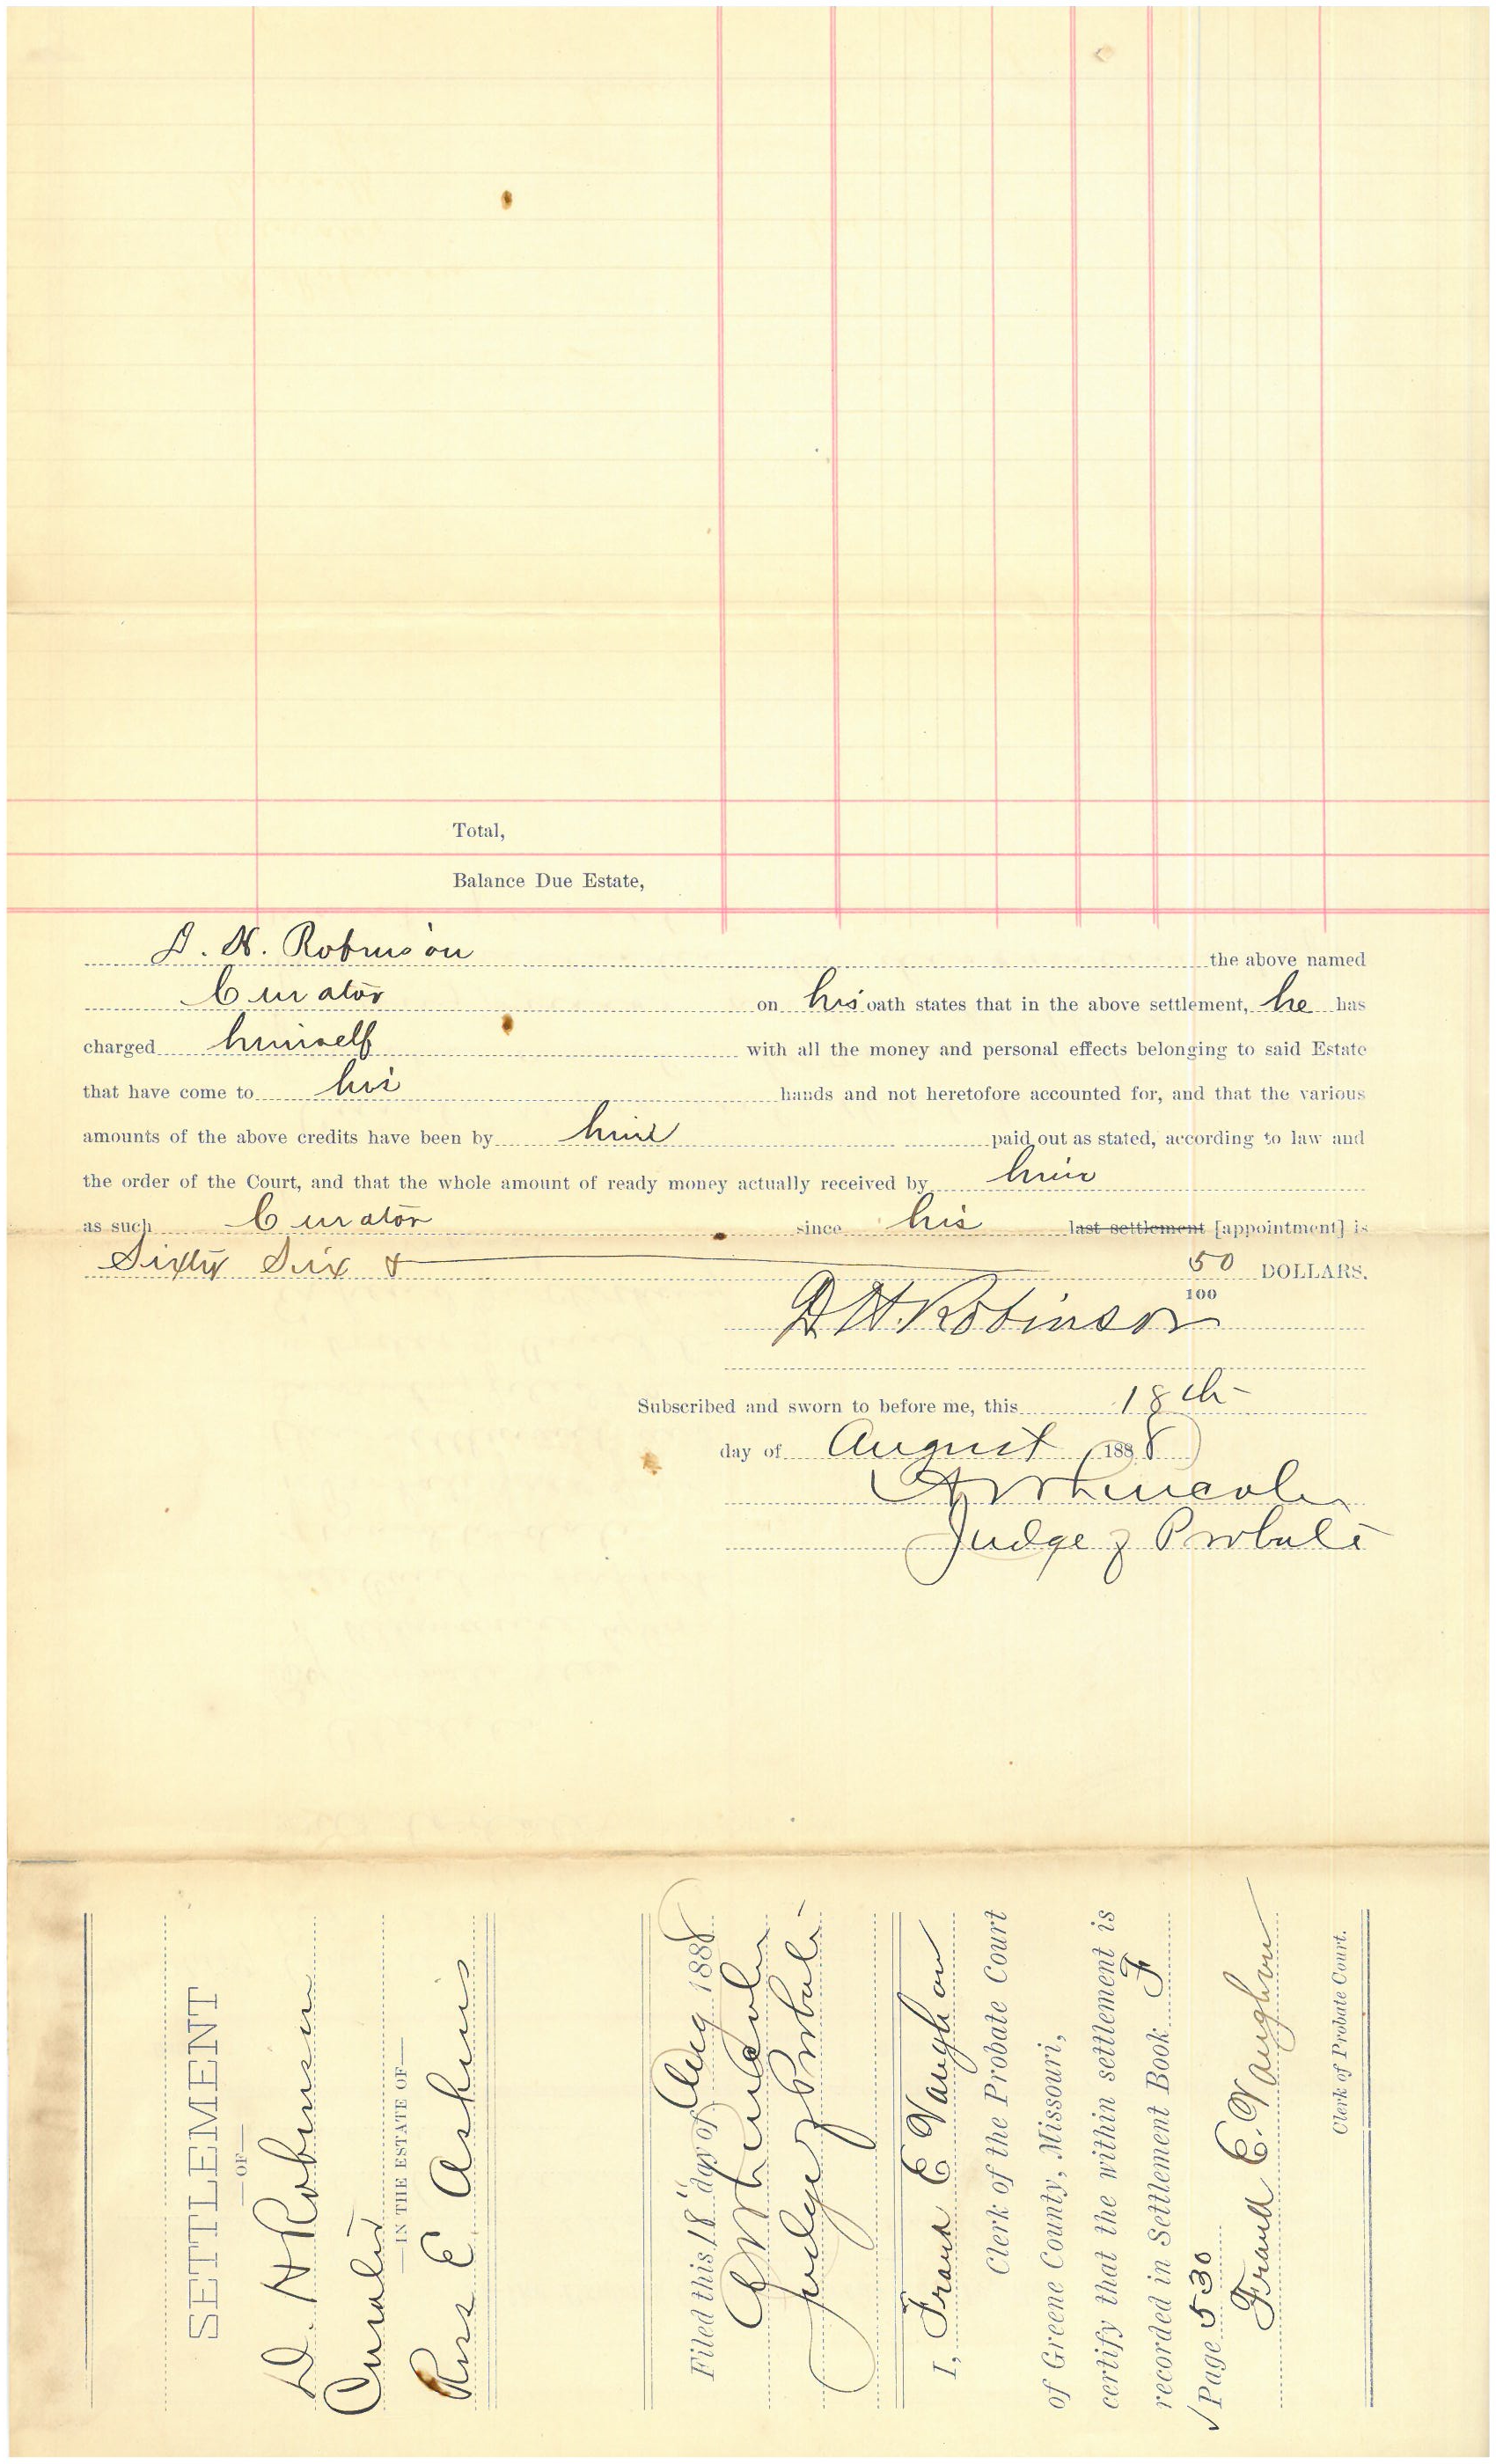 Total,
Balance Due Estate,
D. H. Robinson the above named
Curator on his oath states that in the above settlement, he has
charged himself with all the money and personal effects belonging to said Estate
that have come to his hands and not heretofore accounted for, and that the various
amounts of the above credits have been by him paid out as stated, according to law and
the order of the Court, and that the whole amount of ready money actually received by him
as such Curator since his last settlement [appointment] is
Sixty Six & 50 DOLLARS.
100
D H Robinson
Subscribed and sworn to before me, this 18th
day of August 1888
Lincoln
Judge of Probate
SETTLEMENT
—OF—
D. H Robinson
Curator
—IN THE ESTATE OF—
E
Filed this 18" day of Aug 1888
Lincoln
Judge of Probate
I, Frank E Vaughan
Clerk of the Probate Court
of Greene County, Missouri,
certify that the within settlement is
recorded in Settlement Book F
√ Page 530
Frank E. Vaughan
Clerk of Probate Court.